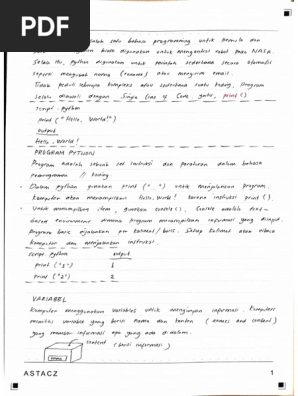 PDF
salah satu bahasa programming untuk pemula dan
python biasa digunakan untuk mengontrol robot pada NASA.
Selain itu, python digunakan untuk perintah sederhana secara otomatis
seperti mengubah nama (rename) atau mengirim email.
Tidak peduli seberapa kompleks atau sederhana suatu coding, program
selalu diawali dengan Simple line of code, yaitu, print()
script python
print ("Hello, World!")
output
Hello, World!
PROGRAM PYTHON
Program adalah sebuah set instruksi dan peraturan dalam bahasa
pemrograman // coding
- Dalam python gunakan print ("...") untuk menjalankan program.
komputer akan menampilkan Hello, World! karena instruksi print ().
- Untuk menampilkan item, gunakan console (). Console adalah text-
based environment dimana program menampilkan informasi yang
Program basic dijalankan per kalimat/baris. Setiap kalimat akan dibaca
komputer dan menjalankan instruksi.
script python output
print ("1") 1
print ("2") 2
VARIABEL
komputer menggunakan variables untuk menyimpan informasi. Komputer
memiliki variable yang berisi nama dan konten (names and content)
yang memuat informasi apa yang ada di dalam.
content (berisi informasi)
ASTACZ 1